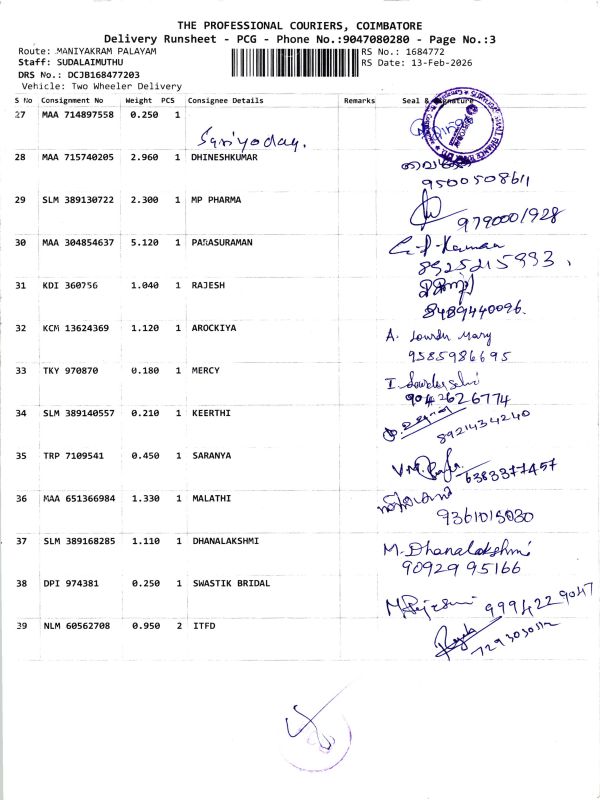 THE PROFESSIONAL COURIERS, COIMBATORE
Delivery Runsheet - PCG - Phone No.:9047080280 - Page No.:3
Route: MANIYAKRAM PALAYAM
RS No.: 1684772
Staff: SUDALAIMUTHU
RS Date: 13-Feb-2026
DRS No.: DCJB168477203
Vehicle: Two Wheeler Delivery
S No Consignment No Weight PCS Consignee Details Remarks Seal & Signature
27 MAA 714897558 0.250 1
Suriyoday.
28 MAA 715740205 2.960 1 DHINESHKUMAR
9500508611
29 SLM 389130722 2.300 1 MP PHARMA
9790001928
30 MAA 304854637 5.120 1 PARASURAMAN
8925215993.
31 KDI 360756 1.040 1 RAJESH
8489440096.
32 KCM 13624369 1.120 1 AROCKIYA
A. Lourdu Mary
9585986695
33 TKY 970870 0.180 1 MERCY
9042626774
34 SLM 389140557 0.210 1 KEERTHI
8921434240
35 TRP 7109541 0.450 1 SARANYA
6383377457
36 MAA 651366984 1.330 1 MALATHI
9361015030
37 SLM 389168285 1.110 1 DHANALAKSHMI
M. Dhanalakshmi
90929 95166
38 DPI 974381 0.250 1 SWASTIK BRIDAL
9994229047
39 NLM 60562708 0.950 2 ITFD
7293030512